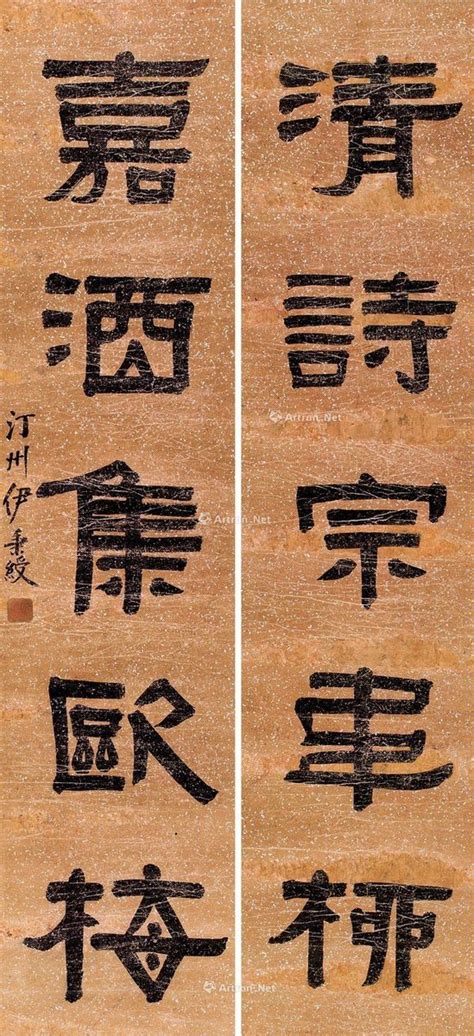 清詩宗韋柳
嘉酒集歐梅
汀州伊秉綬
Artron.Net
Artron.Net
Artron.Net
Artron.Net